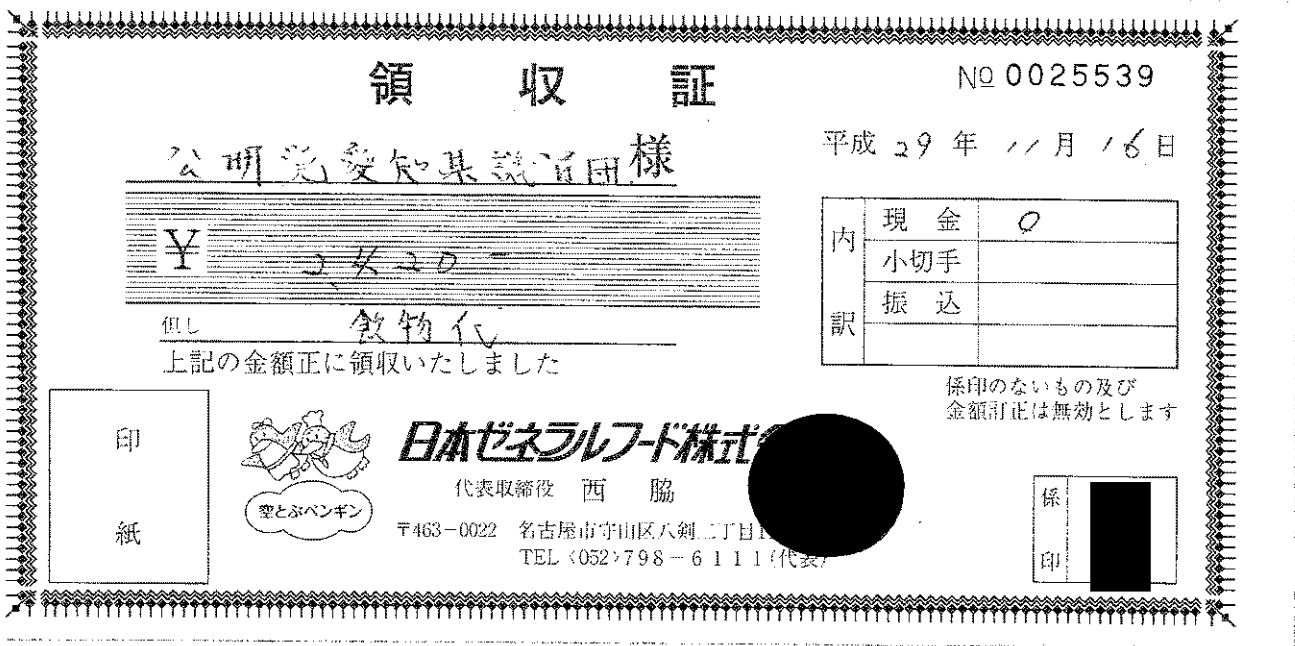 領 収 証
№ 0025539
公明党愛知県議員団様
平成 29 年 11 月 16 日
¥
但し 飲物代
上記の金額正に領収いたしました
内訳
現 金 0
小切手
振 込
係印のないもの及び
金額訂正は無効とします
印
紙
空とぶペンギン
日本ゼネラルフード株式
代表取締役 西 脇
〒463-0022 名古屋市守山区八剣二丁目1
TEL〈052〉798-6111(代表)
係
印